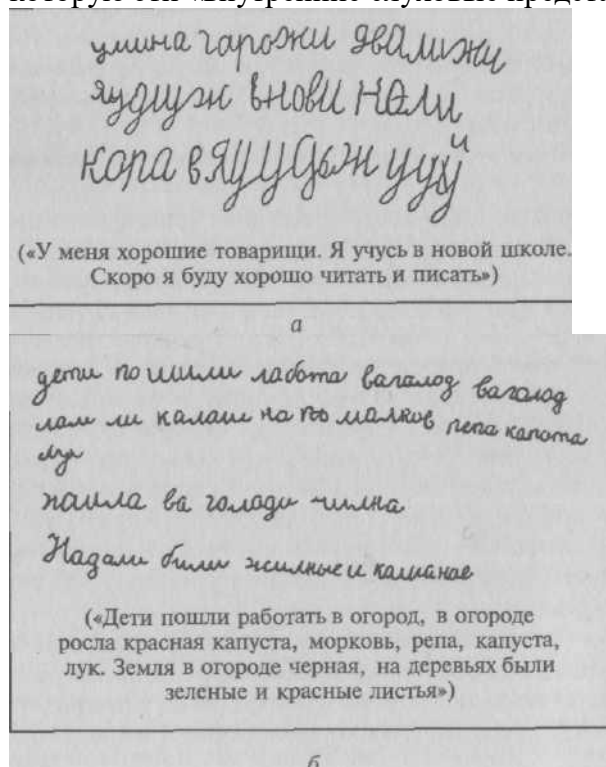 которую эти «внутренние слуховые
умина гарожи двалижи
яудиуж внови нали
кора в яу
(«У меня хорошие товарищи. Я учусь в новой школе.
Скоро я буду хорошо читать и писать»)
а
дети по шили лабота вагалод вагалод
лам ли калаш на по малков репа капота
лук
наила ва голоди чилна
Надали били жилные и калианае
(«Дети пошли работать в огород, в огороде
росла красная капуста, морковь, репа, капуста,
лук. Земля в огороде черная, на деревьях были
зеленые и красные листья»)
б